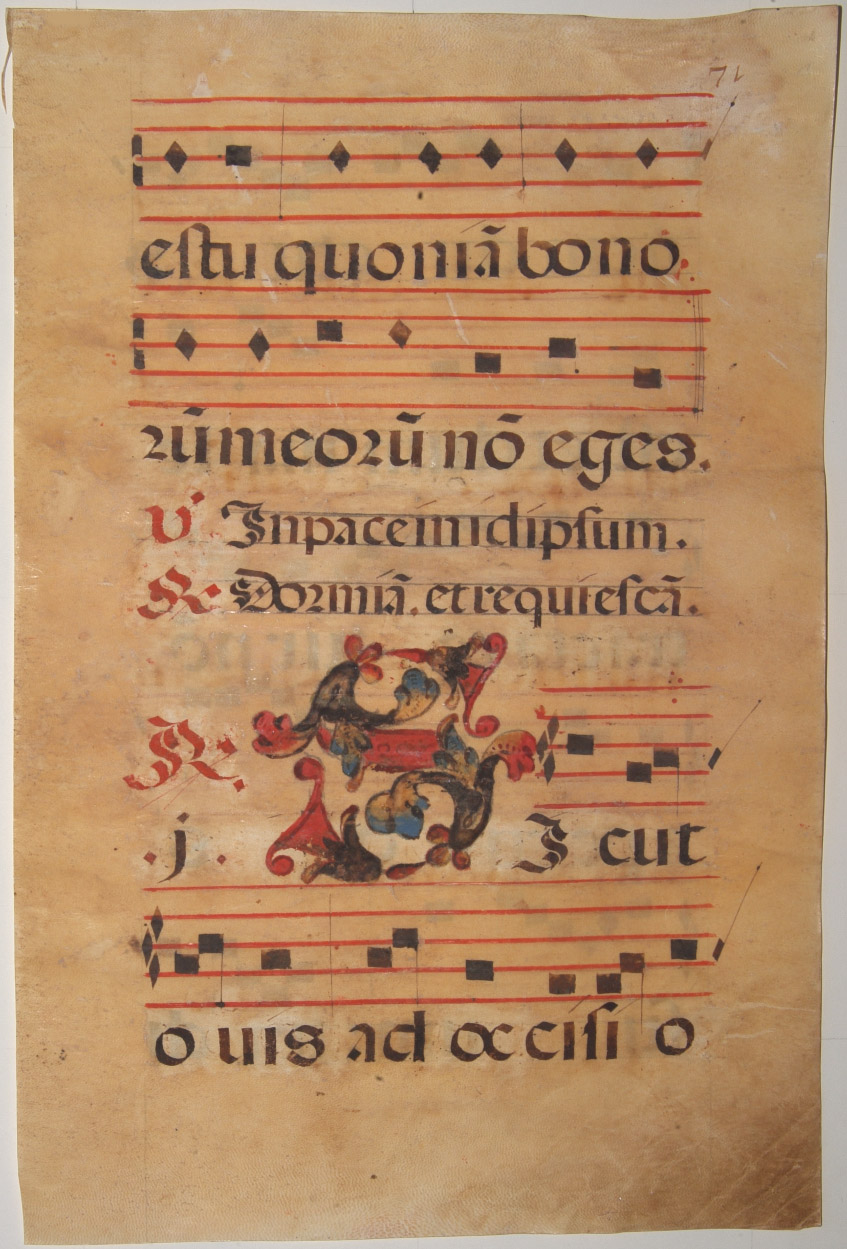 71
estu quoniã bono
rũ meorũ nõ eges.
V Inpace inidipsum.
R Dormiã. et requiescã.
R
.j. S I cut
o uis ad occisi o